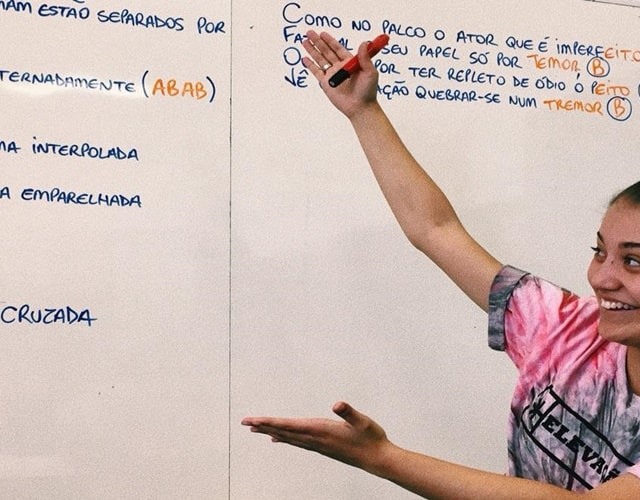 MAM ESTÃO SEPARADOS POR
TERNADAMENTE (ABAB)
MA INTERPOLADA
A EMPARELHADA
CRUZADA
COMO NO PALCO O ATOR QUE É IMPERFEITO
FAZ AL SEU PAPEL SÓ POR TEMOR, (B)
O POR TER REPLETO DE ÓDIO O PEITO
VÊ AÇÃO QUEBRAR-SE NUM TREMOR (B)
ELEVA